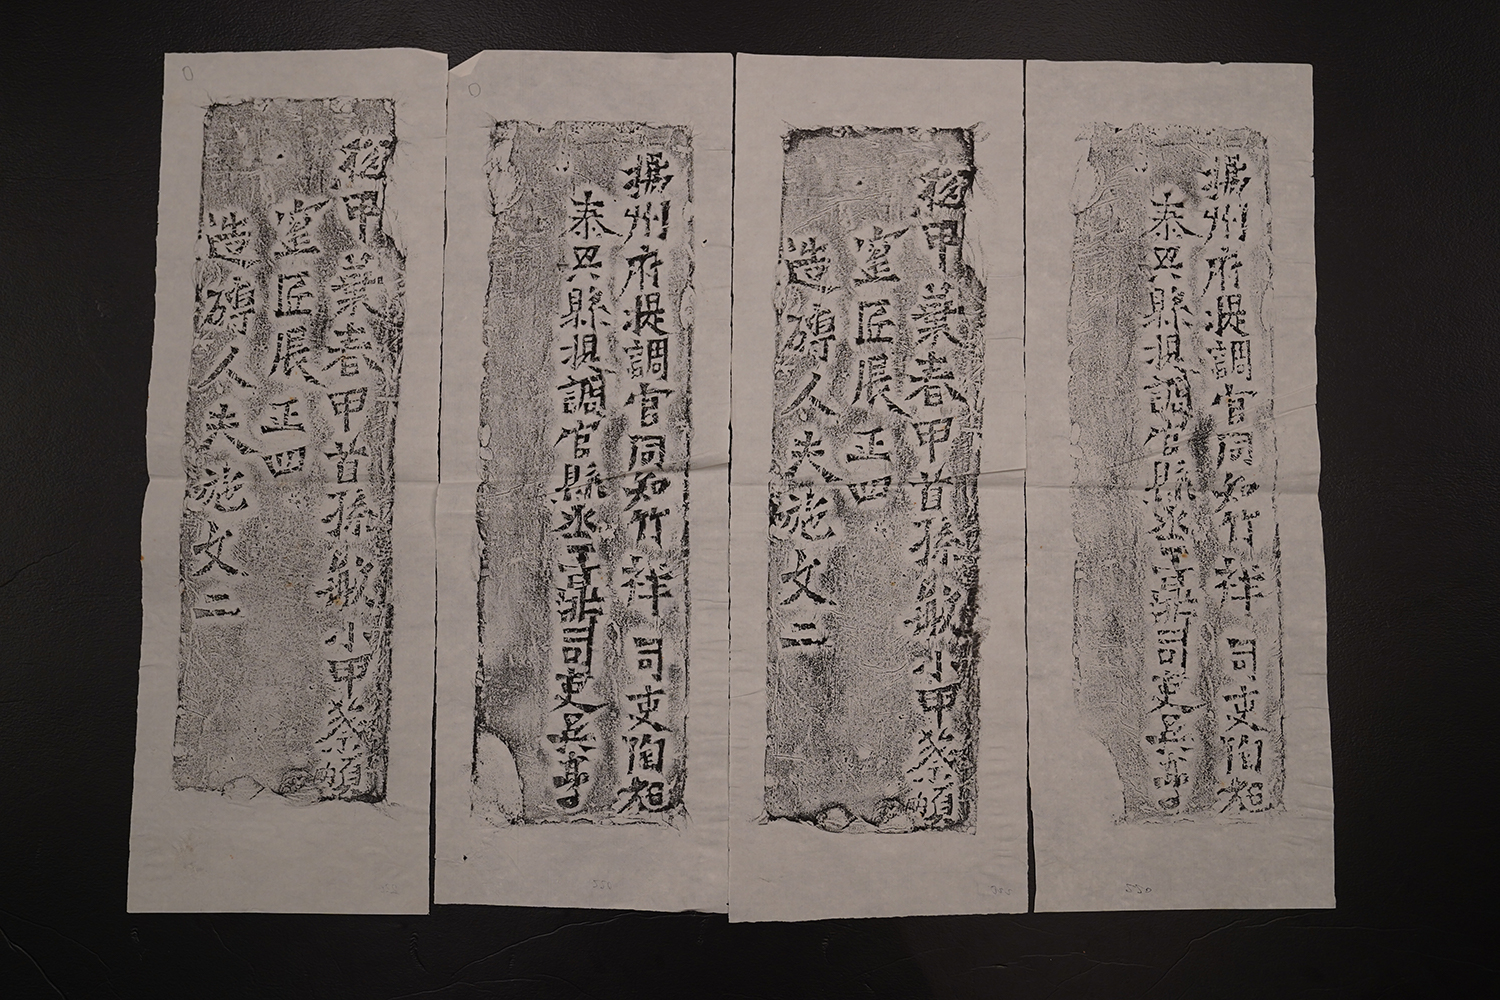 揚州府提調官同知竹祥司吏陶旭
泰興縣提調官縣丞王鼎司吏吳亨
總甲葉春甲首孫敏小甲蔡
窰匠展正四
造磚人夫施文二
揚州府提調官同知竹祥司吏陶旭
泰興縣提調官縣丞王鼎司吏吳亨
總甲葉春甲首孫敏小甲蔡
窰匠展正四
造磚人夫施文二